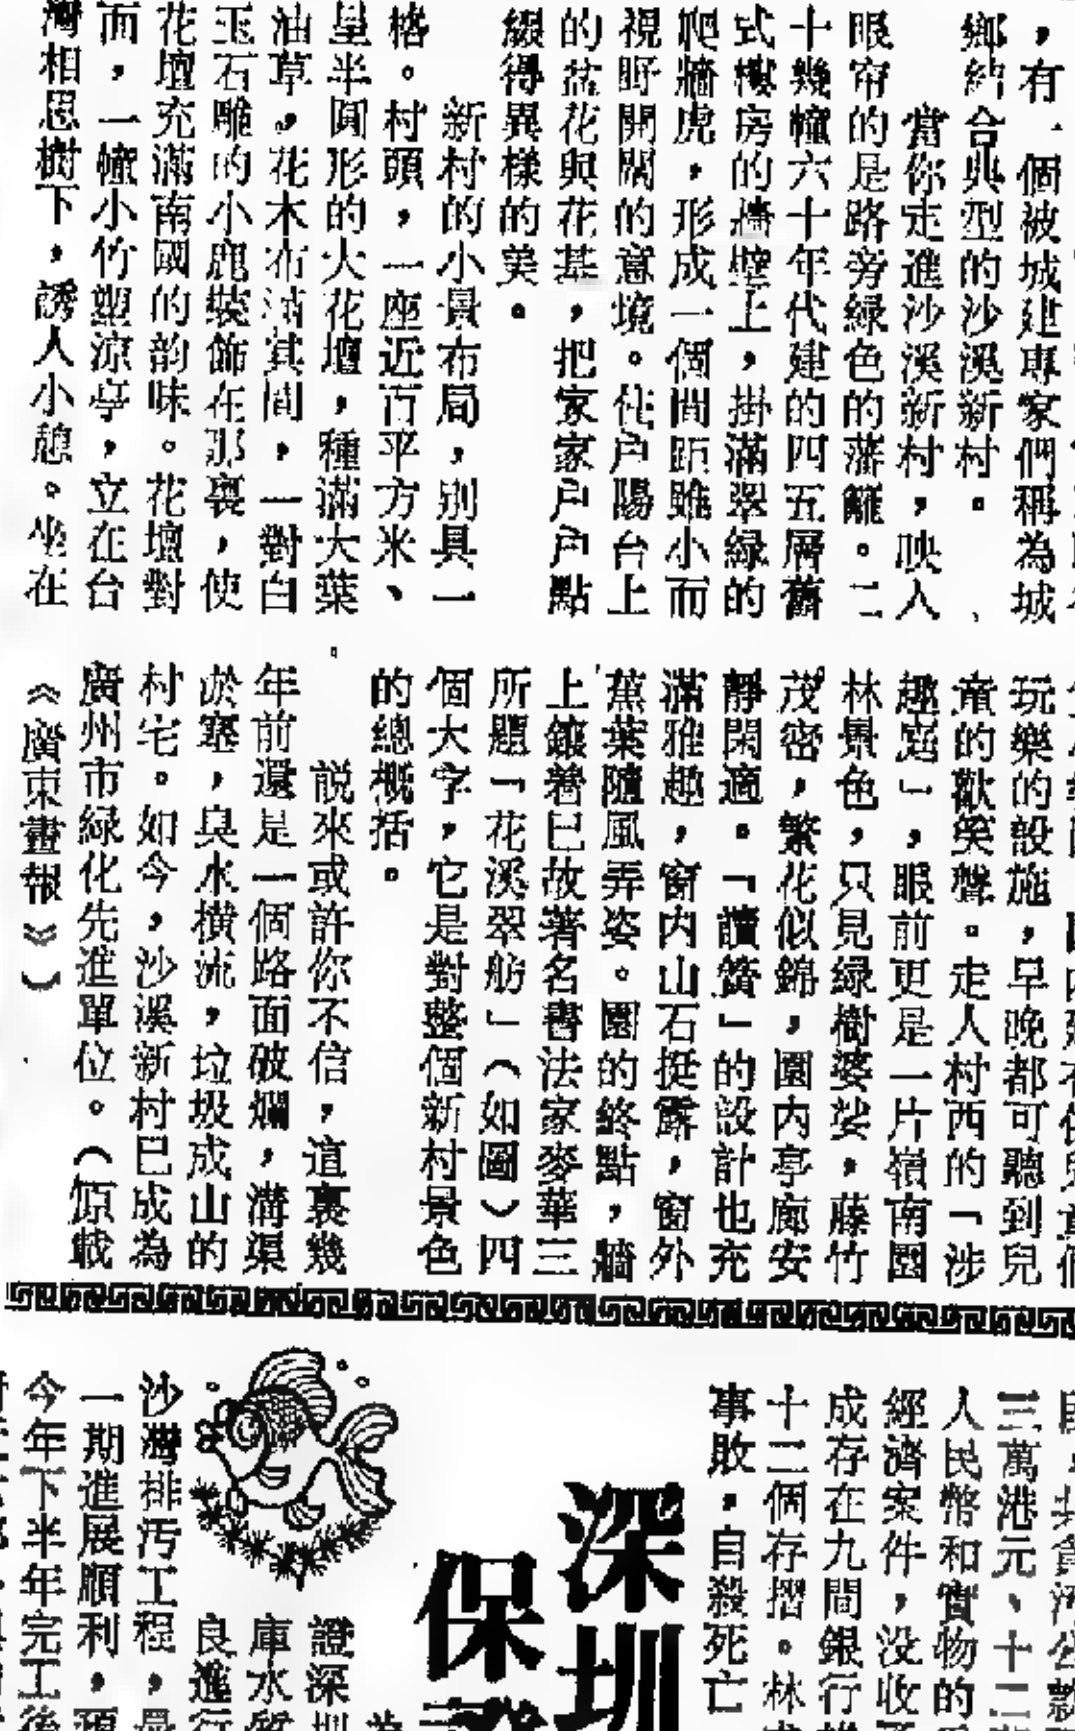 ，有一個被城建專家們稱為城
鄉結合典型的沙溪新村。
當你走進沙溪新村，映入
眼帘的是路旁綠色的藩籬。二
十幾幢六十年代建的四五層舊
式樓房的墻壁上，掛滿翠綠的
爬牆虎，形成一個間距雖小而
視野開闊的意境。住戶陽台上
的盆花與花基，把家家戶戶點
綴得異樣的美。
新村的小景布局，別具一
格。村頭，一座近百平方米、
呈半圓形的大花壇，種滿大葉
油草，花木布滿其間，一對白
玉石雕的小鹿裝飾在那裏，使
花壇充滿南國的韵味。花壇對
面，一幢小竹塑涼亭，立在台
灣相思樹下，誘人小憩。坐在
玩樂的設施，早晚都可聽到兒
童的歡笑聲。走人村西的「涉
趣庭」，眼前更是一片嶺南園
林景色，只見綠樹婆娑，藤竹
茂密，繁花似錦，園內亭廊安
靜閑適。「讀簀」的設計也充
滿雅趣，窗內山石挺露，窗外
蕉葉隨風弄姿。園的終點，牆
上鑲着已故著名書法家麥華三
所題「花溪翠舫」（如圖）四
個大字，它是對整個新村景色
的總概括。
說來或許你不信，這裏幾
年前還是一個路面破爛，溝渠
淤塞，臭水橫流，垃圾成山的
村宅。如今，沙溪新村已成為
廣州市綠化先進單位。（原載
《廣東畫報》）
三萬港元、十二
人民幣和實物的
經濟案件，沒收
成存在九間銀行
十二個存摺。林
事敗，自殺死亡
深圳
保
證深圳
庫水質
良進行
沙灣排污工程，
一期進展順利，
今年下半年完工後